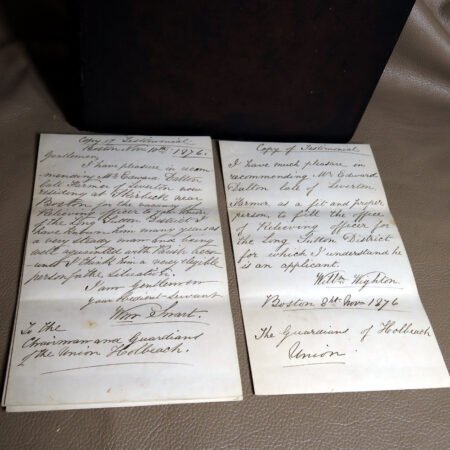 Copy of Testimonial
Boston Nov 10th 1876.
Gentlemen
I have pleasure in recom
mending Mr Edward Dalton
late Farmer of Leverton now
residing at Skirbeck near
Boston for the vacancy of
Relieving officer to your Union
of the Long Sutton District I
have known him many years as
a very steady man and being
well acquainted with Parish
work I think him a very eligible
person for the situation.
I am Gentlemen
your obedient servant
Wm Smart
To the
Chairman and Guardians
of the Union Holbeach.
Copy of Testimonial.
I have much pleasure in
recommending Mr Edward
Dalton late of Leverton
Farmer as a fit and proper
person, to fill the office
of Relieving officer for
the Long Sutton District
for which I understand he
is an applicant.
Willm Wighton
Boston 8th Nov 1876
The Guardians of Holbeach
Union.